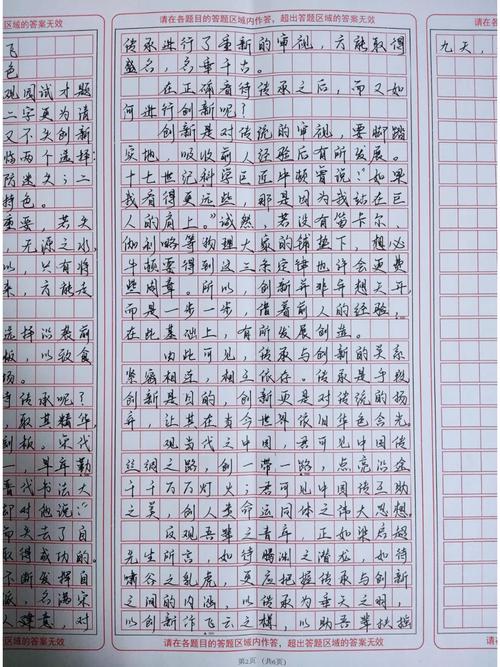 请在各题目的答题区域内作答，超出答题区域的答案无效
飞
色
观阅试才题
二字更为请
又不失创新
临两个选择：
防迷失；二
特色。
重要，若失
无源之水，
以，只有将
来，方能走
选择沿袭前
板，以致食
场。
待传承呢？
取其精华，
刻板。宋代
早年勤
晋代书法大
却对他说：
而失去了自
取得成功的。
下断发挥自
派，名满宋
人建义，对
区域的答案无效
传承进行了重新的审视，方能取得
盛名，名垂千古。
在正确看待传承之后，而又如
何进行创新呢？
创新是对传统的审视，要脚踏
实地，吸收前人经验后有所发展。
十七世纪科学巨匠牛顿曾说：“如果
我看得更远些，那是因为我站在巨
人的肩上。”诚然，若没有笛卡尔、
伽利略等物理大家的铺垫下，想必
牛顿要得到这三条定律也许会更费
些周章。所以，创新并非年想天开，
而是一步一步，借着前人的经验，
在此基础上，有所发展创造。
由此可见，传承与创新的关系
紧密相连，相互依存。传承是手段
创新是目的，创新更是对传统的扬
弃，让其在当今世界依旧华色含光。
观当代之中国，君可见中国传
丝绸之路，创一带一路，点亮沿途
千千万万灯火；君可见中国传互助
之美，创人类命运同体之伟大思想。
反观吾辈之青年，正如梁启超
先生所言，如待腾渊之潜龙，如待
啸谷之乳虎，更应把握传承与创新
之间的内涵，以传承为垂天之羽，
以创新作飞云之梯，以助吾辈扶摇
请在各题目的答题区域内作答，超出答题区域的答案无效
第2页（共6页）
请在各题目的答
九天，
请在各题目的答